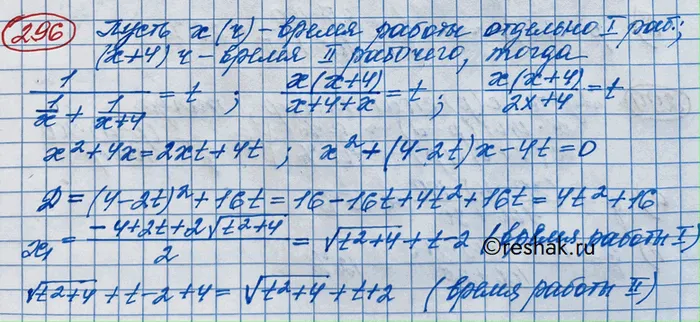 296 Пусть x (ч) - время работы отдельно I раб.;
(x+4) ч - время II рабочего, тогда
1/(1/x + 1/(x+4)) = t ; x(x+4)/(x+4+x) = t ; x(x+4)/(2x+4) = t
x²+4x=2xt+4t ; x²+(4-2t)x-4t=0
D=(4-2t)²+16t=16-16t+4t²+16t=4t²+16
x₁ = (-4+2t+2√(t²+4))/2 = √(t²+4)+t-2 (время работы I)
©reshak.ru
√(t²+4)+t-2+4=√(t²+4)+t+2 (время работы II)